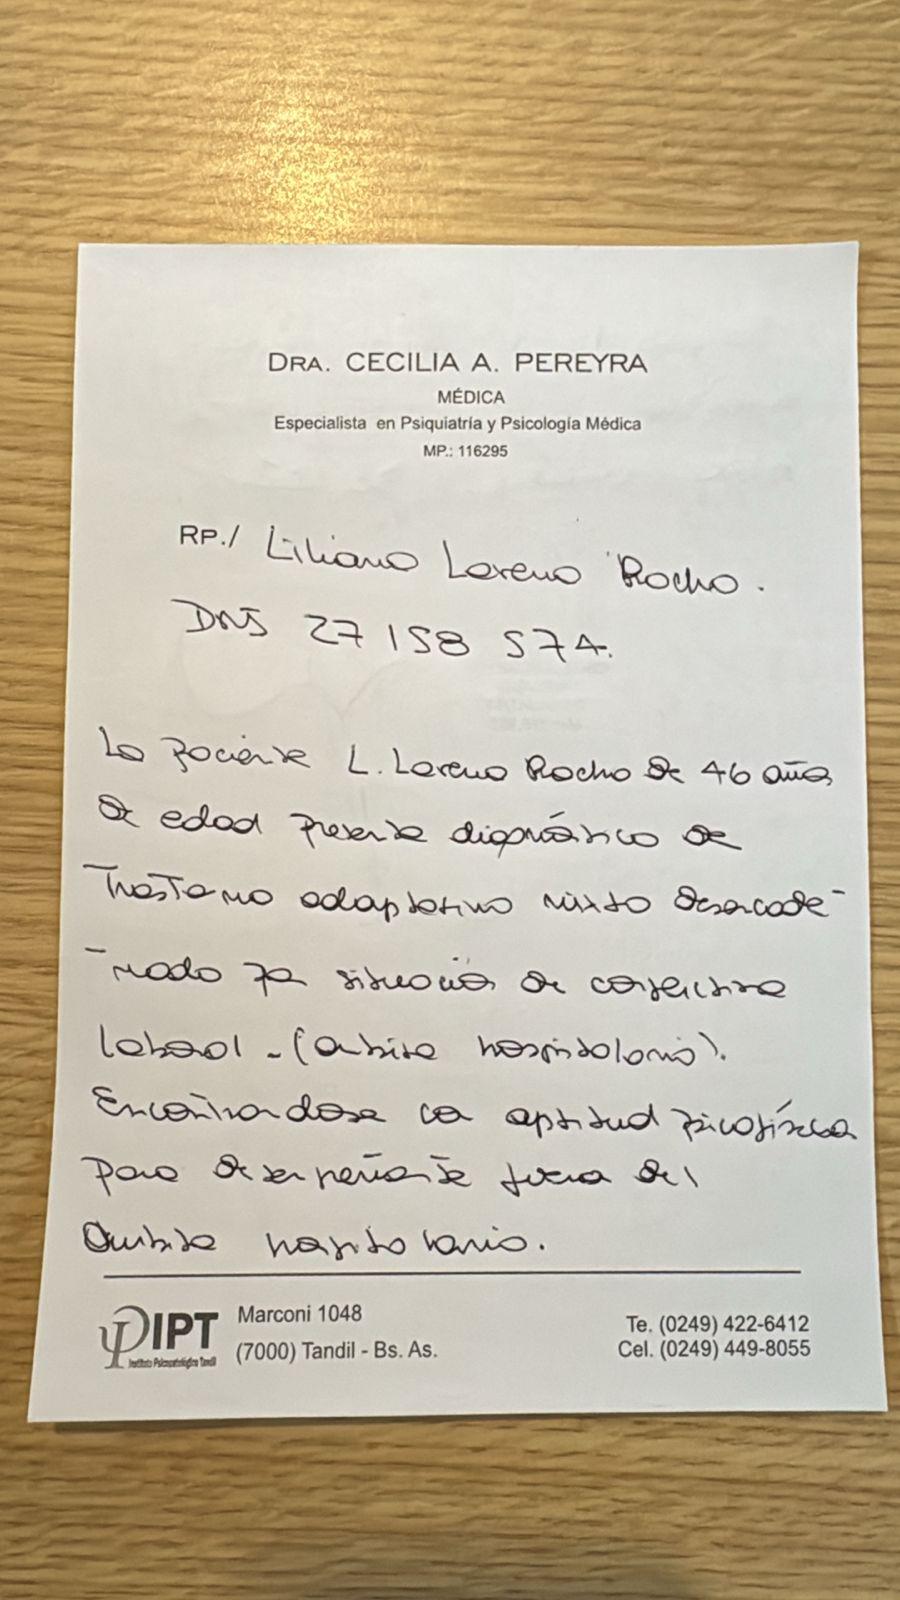 DRA. CECILIA A. PEREYRA
MÉDICA
Especialista en Psiquiatría y Psicología Médica
MP.: 116295
RP./ Liliana Lorena Rocha.
DNI 27 158 574.
La paciente L. Lorena Rocha de 46 años
de edad presenta diagnóstico de
Trastorno adaptativo mixto desencade-
-nado por situación de conflictiva
laboral - (ámbito hospitalario).
Encontrandose con aptitud psicofísica
para desempeñarse fuera del
ámbito hospitalario.
IPT
Instituto Psicopatológico Tandil
Marconi 1048
(7000) Tandil - Bs. As.
Te. (0249) 422-6412
Cel. (0249) 449-8055